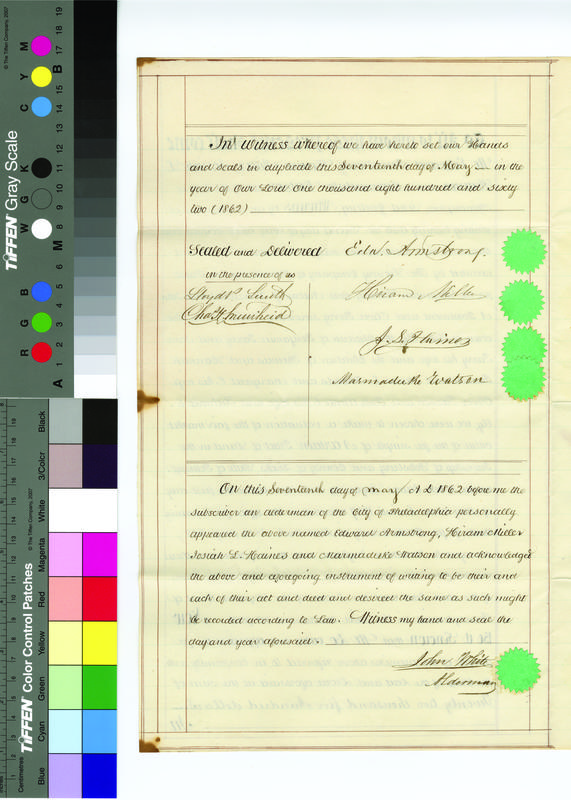 In Witness Whereof we have hereto set our Hands
and seals in duplicate this Seventeenth day of May in the
year of Our Lord One thousand eight hundred and sixty
two (1862)
Sealed and Delivered
in the presence of us
Lloyd P. Smith
Chas H. Muirheid
Edw. Armstrong
Hiram Miller
J. L. Haines
Marmaduke Watson
On this Seventeenth day of May A D 1862 before me the
subscriber an alderman of the City of Philadelphia personally
appeared the above named Edward Armstrong, Hiram Miller
Josiah L. Haines and Marmaduke Watson and acknowledged
the above and foregoing instrument of writing to be their and
each of their act and deed and desired the same as such might
be recorded according to Law. Witness my hand and seal the
day and year aforesaid.
John White
Alderman
TIFFEN Gray Scale
© The Tiffen Company, 2007
R G B W G K C Y M
A 1 2 3 4 5 6 M 8 9 10 11 12 13 14 15 B 17 18 19
TIFFEN Color Control Patches
© The Tiffen Company, 2007
Centimetres
Blue Cyan Green Yellow Red Magenta White 3/Color Black